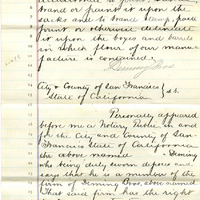 brand or paint it upon the
sacks and to brand, stamp, paint
print or otherwise delineate
it upon the boxes and barrels
in which flour of our manu-
facture is contained.
Deming Bros
City & County of San Francisco } S.S.
State of California
Personally appeared
before me a Notary Public in and
for the City and County of San
Francisco State of California
the above named Deming
who being duly sworn deposes and
says that he is a member of the
firm of Deming Bros above named
That said firm has the right